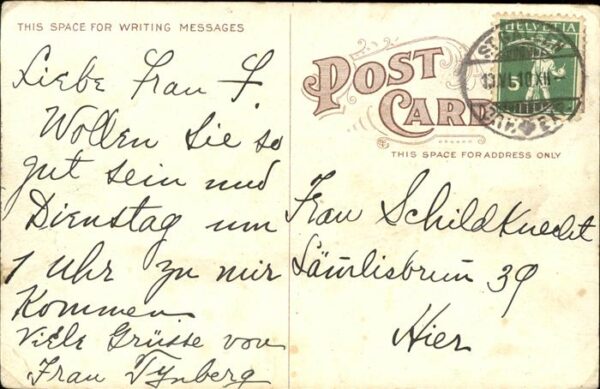 THIS SPACE FOR WRITING MESSAGES
Liebe Frau S.
Wollen Sie so
gut sein und
Dienstag um
1 Uhr zu mir
kommen
Viele Grüsse von
Frau Tynberg
POST
CARD
THIS SPACE FOR ADDRESS ONLY
HELVETIA
5
Frau Schildknecht
Lämlisbrun 39
Hier